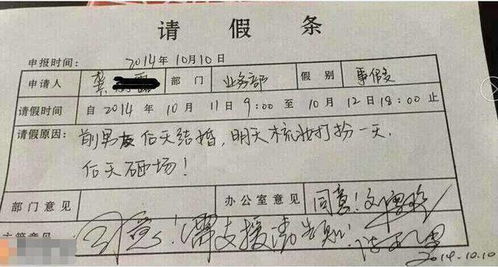 请假条
申报时间: 2014年10月10日
申请人 龚 露 部门 业务部 假别 事假
请假时间 自 2014 年 10 月 11 日 9:00 至 10 月 12 日 18:00 止
请假原因: 前男友后天结婚,明天梳妆打扮一天.
后天砸场!
部门意见 办公室意见 同意!
主管意见 同意!需支援请告知!
2014.10.10